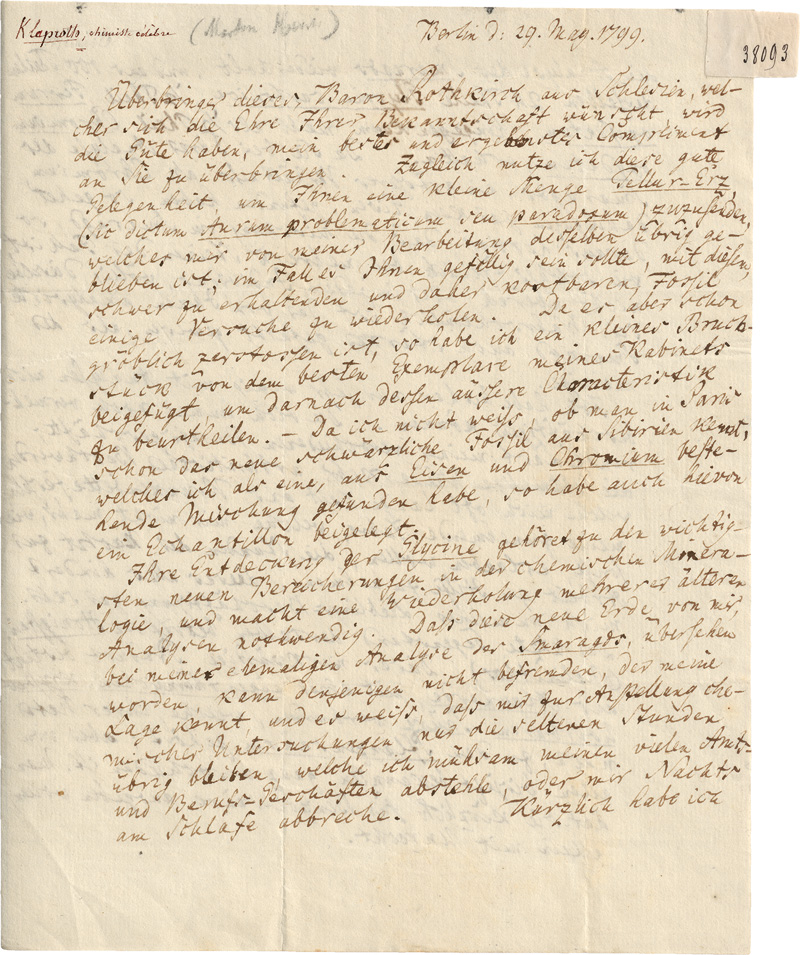 Klaproth, chimiste célèbre
(Martin
Berlin d: 29. May. 1799.
38093
Überbringer dieses, Baron Rothkirch aus Schlesien, wel-
cher sich die Ehre Ihrer Bekanntschaft wünscht, wird
die Güte haben, mein bestes und ergebenstes Compliment
an Sie zu überbringen. Zugleich nutze ich diese gute
Gelegenheit, um Ihnen eine kleine Menge Tellur-Erz,
(sic dictum Aurum problematicum seu paradoxum) zuzusenden,
welches mir von meiner Bearbeitung desselben übrig ge-
blieben ist; im Fall es Ihnen gefällig sein sollte, mit diesen,
schwer zu erhaltenden und daher kostbaren, Fossil
einige Versuche zu wiederholen. Da es aber schon
gröblich zerstossen ist, so habe ich ein kleines Bruch-
stück von dem besten Exemplare meines Kabinets
beigefügt, um darnach dessen äussere Characteristik
zu beurtheilen. – Da ich nicht weiss, ob man in Paris
schon das neue schwärzliche Fossil aus Sibirien kennt,
welches ich als eine, aus Eisen und Chromium beste-
hende Mischung gefunden habe, so habe auch hievon
ein Echantillon beigelegt.
Ihre Entdeckung der Glycine gehöret zu den wichtig-
sten neuen Bereicherungen in der chemischen Minera-
logie, und macht eine Wiederholung mehrerer älteren
Analysen nothwendig. Dass diese neue Erde von mir,
bei meiner ehemaligen Analyse des Smaragds, übersehen
worden, kann denjenigen nicht befremden, der meine
Lage kennt, und es weiss, dass mir zur Anstellung che-
mischer Untersuchungen nur die seltenen Stunden
übrig bleiben, welche ich mühsam meinen vielen Amts-
und Berufs-Geschäften abstehle, oder mir Nachts
am Schlafe abbreche. Kürzlich habe ich